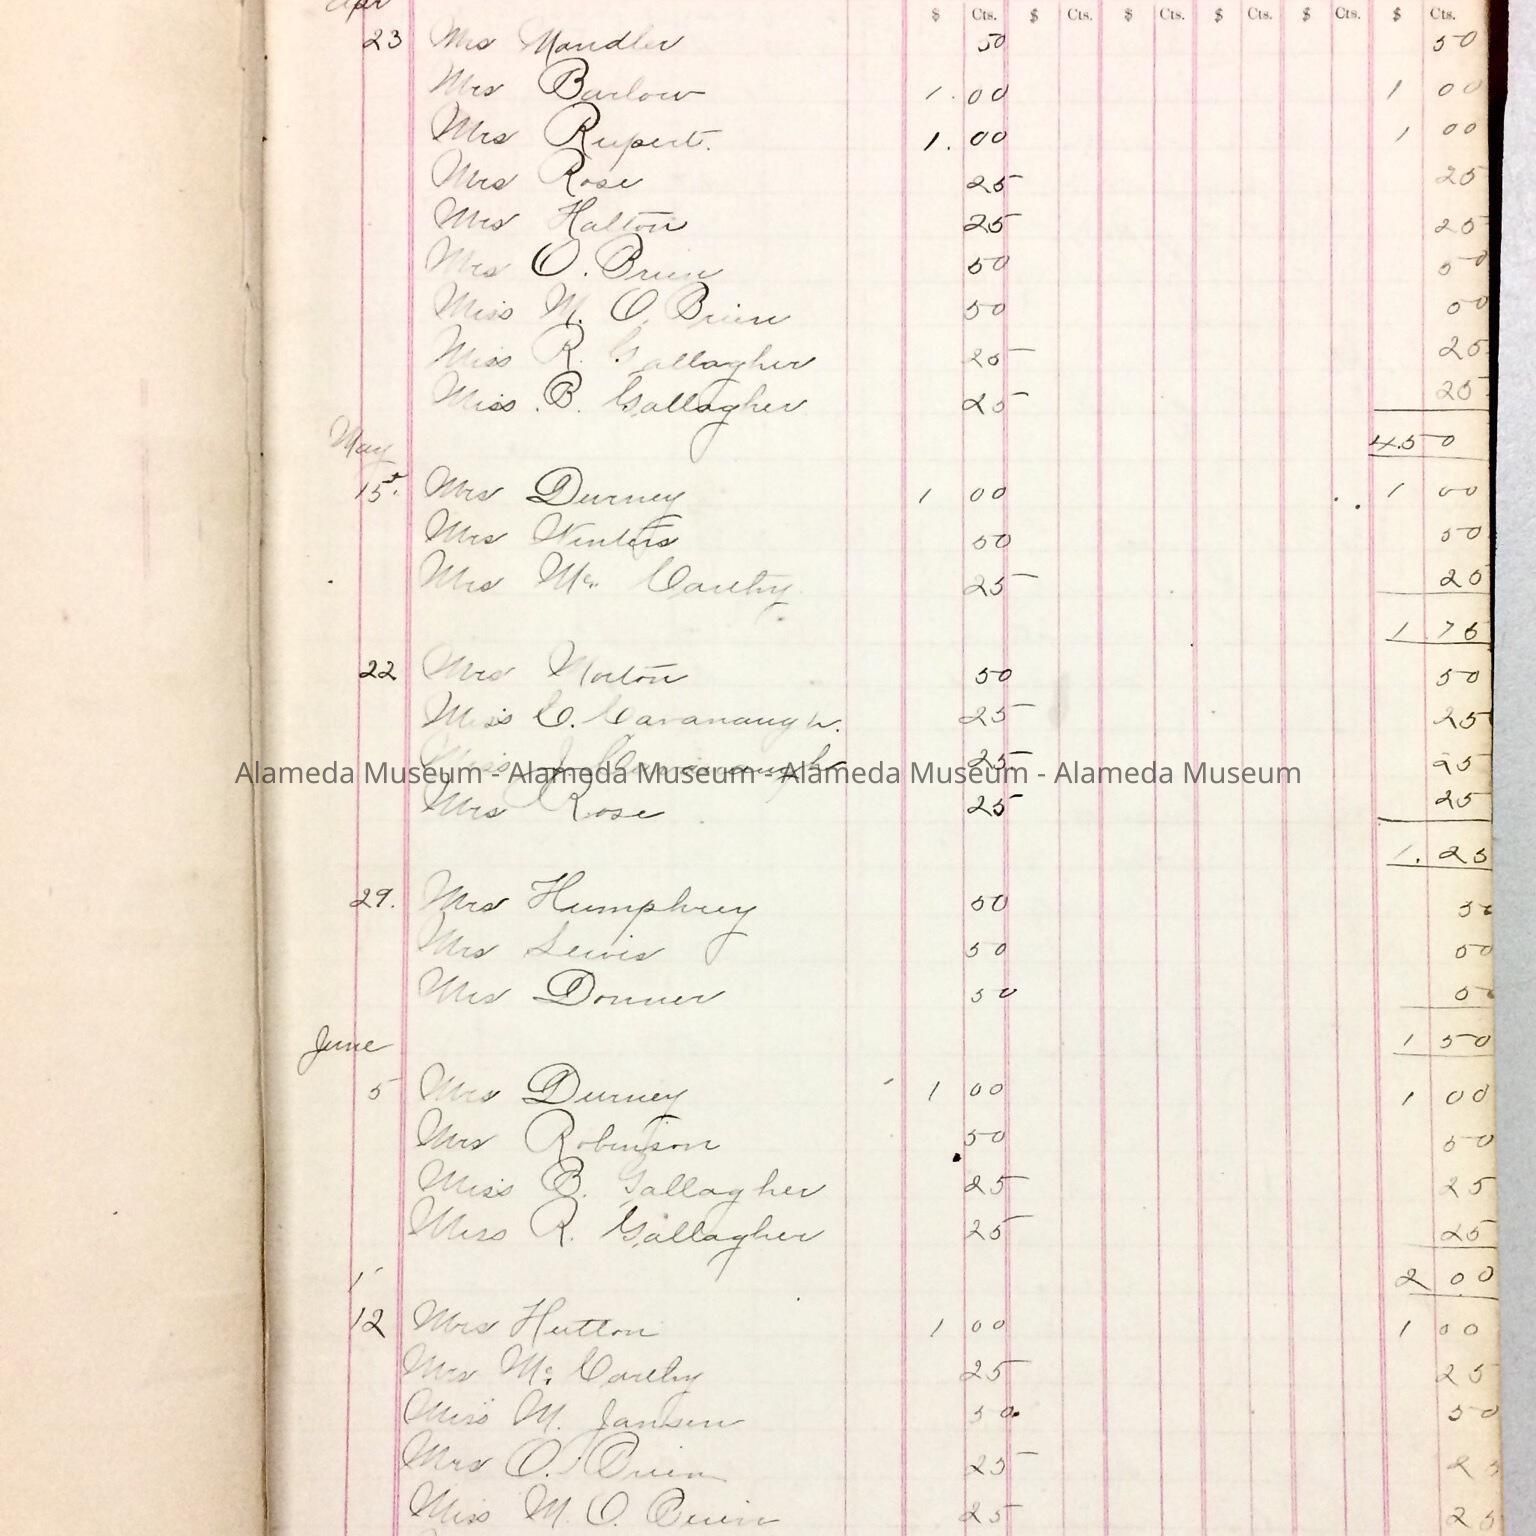 Apr
$ Cts. $ Cts. $ Cts. $ Cts. $ Cts. $ Cts.
23 Mrs Mandler 50 50
Mrs Barlow 1.00 1 00
Mrs Rupert. 1.00 1 00
Mrs Rose 25 25
Mrs Halton 25 25
Mrs O. Brien 50 50
Miss M. O. Brien 50 50
Miss R. Gallagher 25 25
Miss B. Gallagher 25 25
4.50
May
15. Mrs Durney 1 00 1 00
Mrs Winters 50 50
Mrs Mc. Carthy 25 25
1.75
22 Mrs Norton 50 50
Miss C. Cavanaugh. 25 25
Miss J. Cavanaugh 25 25
Alameda Museum - Alameda Museum - Alameda Museum - Alameda Museum
Mrs Rose 25 25
1.25
29. Mrs Humphrey 50 50
Mrs Lewis 50 50
Mrs Donner 50 50
June
1 50
5 Mrs Durney 1 00 1 00
Mrs Robinson 50 50
Miss B. Gallagher 25 25
Miss R. Gallagher 25 25
2 00
12 Mrs Hutton 1 00 1 00
Mrs Mc Carthy 25 25
Miss M. Jansen 50 50
Mrs O. Brien 25 25
Miss M. O. Brien 25 25